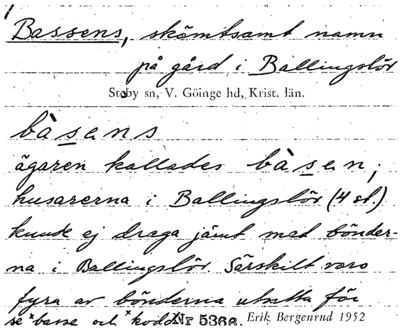 Bassens, skämtsamt namn
på gård i Ballingslöv
Stoby sn, V. Göinge hd, Krist. län.
bàsens
ägaren kallades bàsen;
husarerna i Ballingslöv (4 st.)
kunde ej draga jämt med bönder-
na i Ballingslöv Särskilt voro
fyra av bönderna utsatta för
se *basse och *kodd Nr 5366. Erik Bergenrud 1952